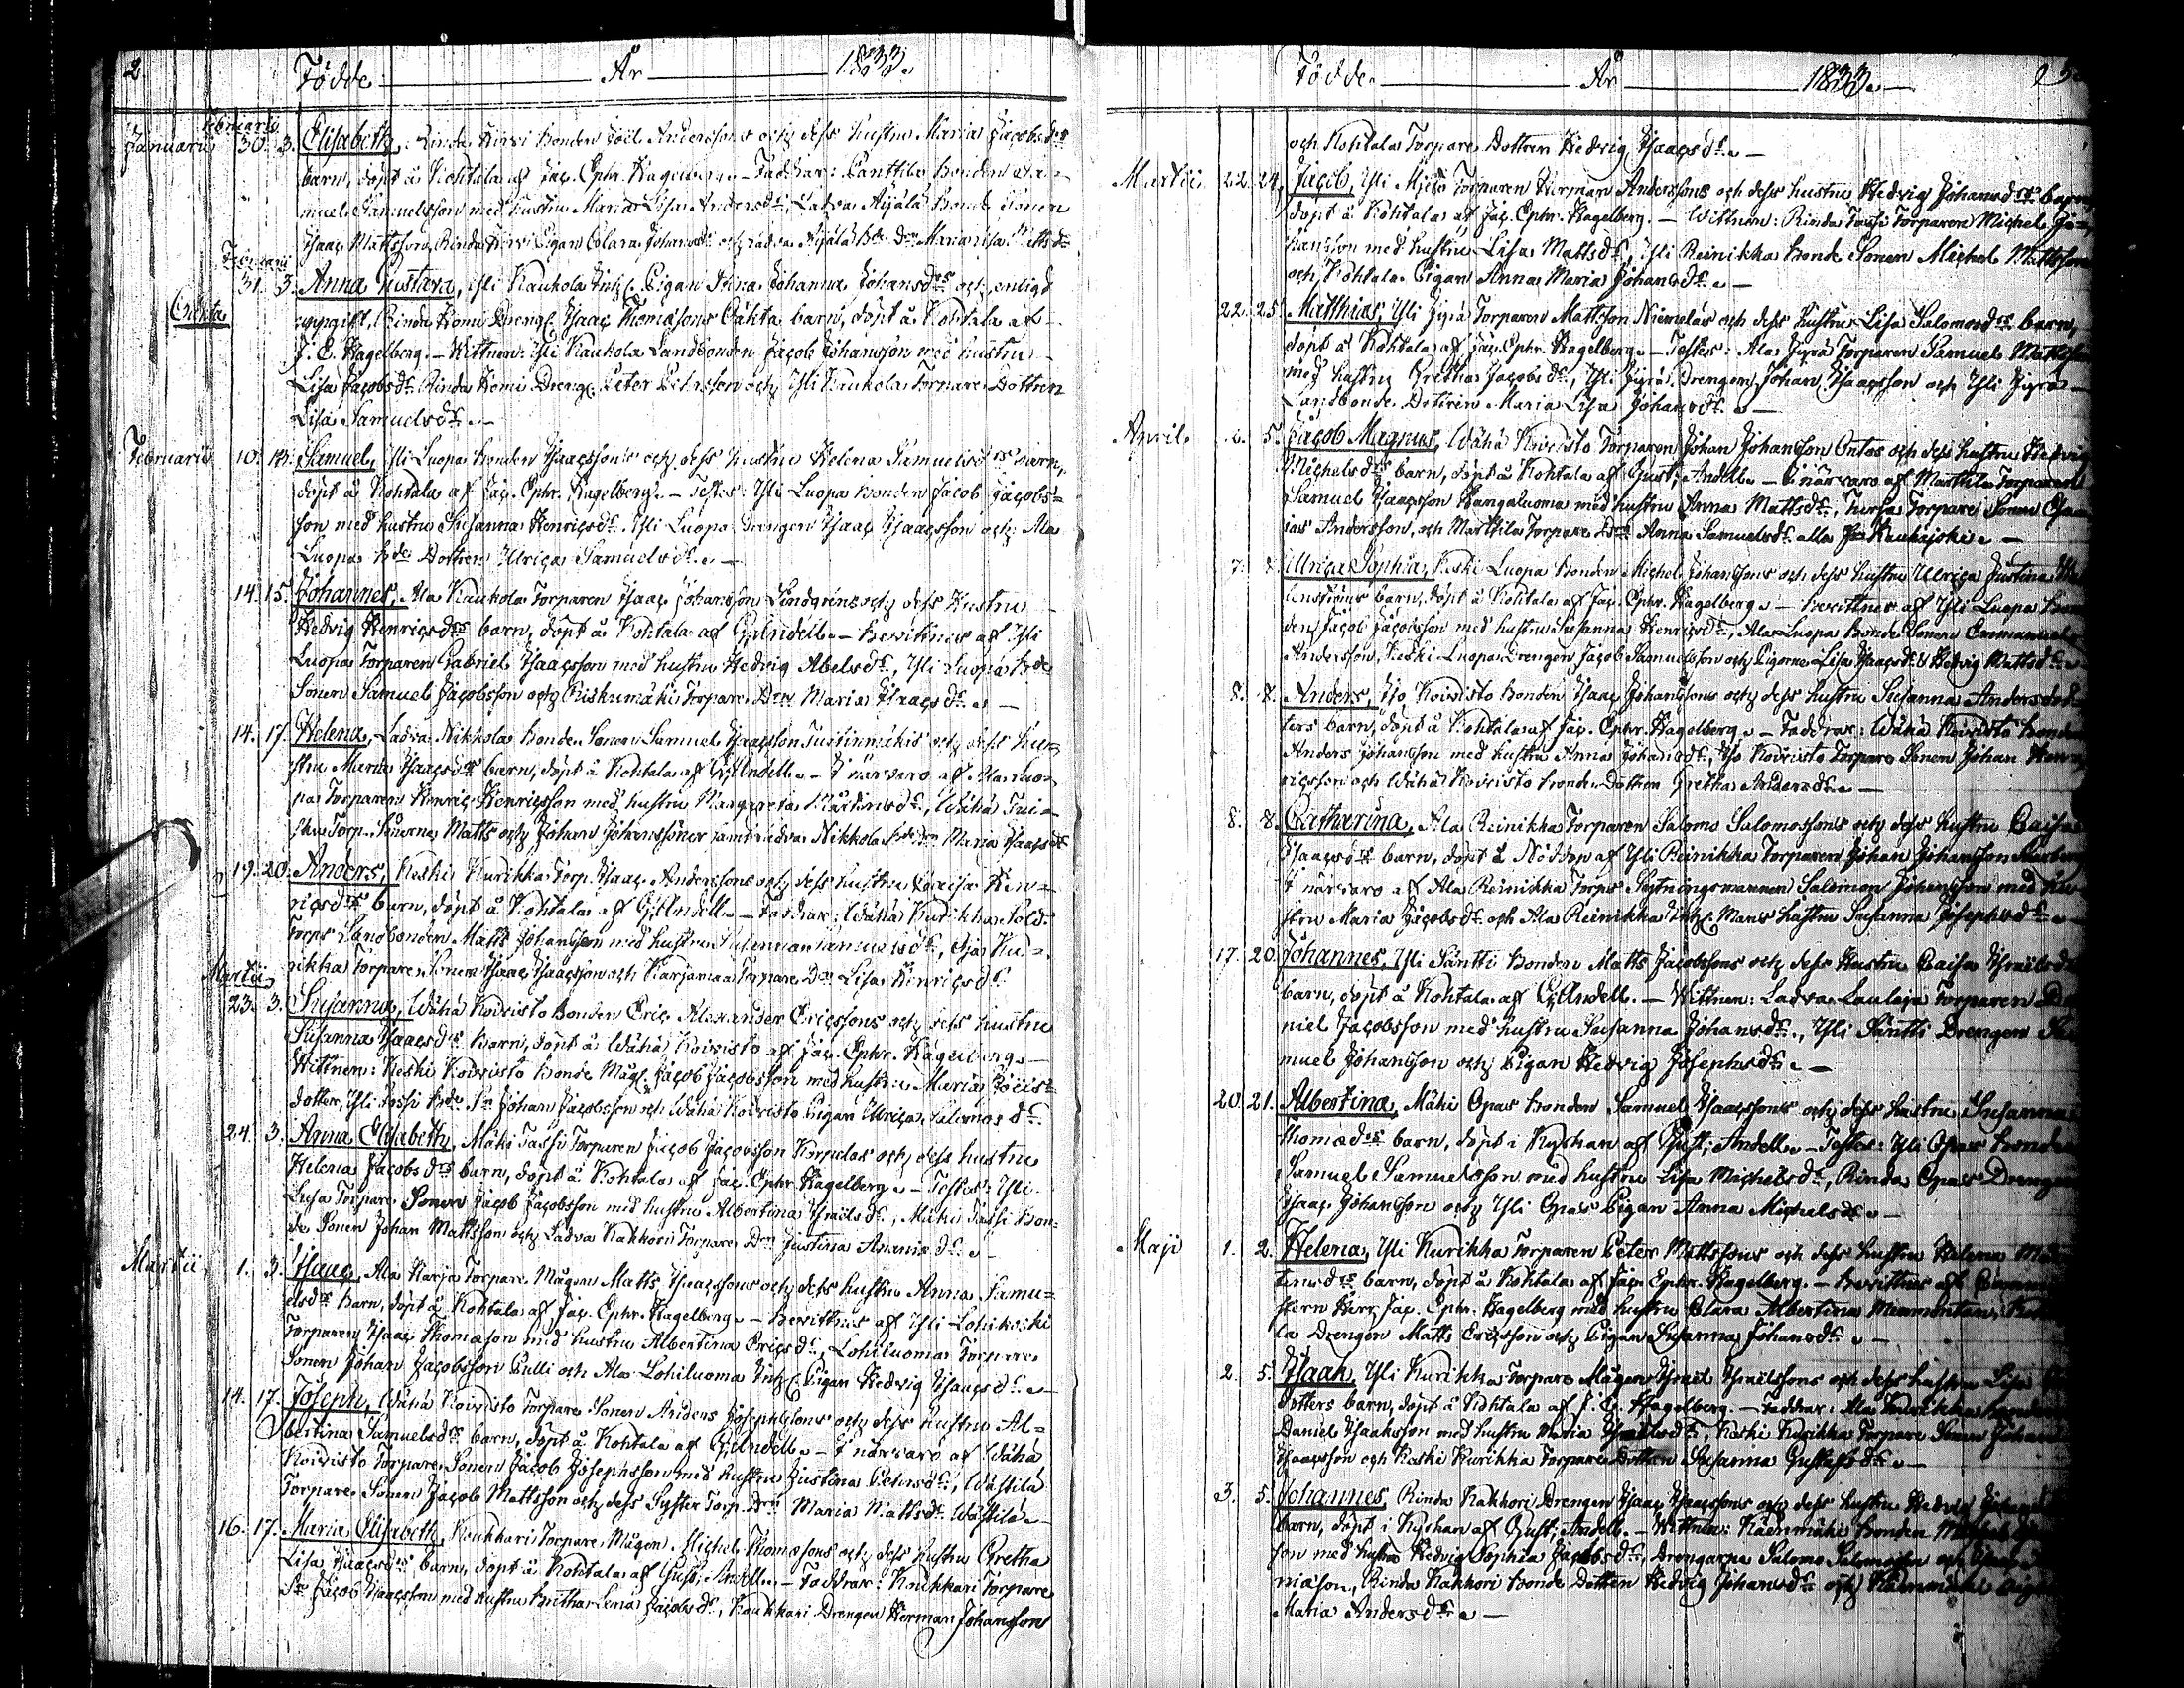 2. Födde År 1833.
Januarii Februarii 30. 3. Elisabeth, Rinda Hirvi Bonden Joël Anderssons och dess hustru Maria Jacobsdrs
barn, döpt å Kohtala af Jac. Ephr. Hagelberg. – Faddrar: Panttila Bonden Sa-
muel Samuelsson med hustru Maria Lisa Andersdr, Ladva Äijälä Bonde Sonen
Isaac Mattsson, Rinda Hirvi Pigan Clara Johansdr och Ladva Äijälä Bde Drn Maria Lisa
Februarii 31. 3. Anna Gustava, Yli Kaukola Inh. Pigan Stina Johanna Johansdrs och enligt
Oäkta uppgift, Rinda Komu Drengs Isaac Thomæsons Oäkta barn, döpt å Kohtala af
J. E. Hagelberg. – Wittnen: Yli Kaukola Landbonden Jacob Johansson med hustru
Lisa Jacobsdr Rinda Komu Dreng Peter Petersson och Yli Kaukola Torpare Dottren
Lisa Samuelsdr. –
Februarii 10. Samuel, Yli Luopa Bonden Isaacssons och dess hustru Helena Samuelsdrs barn,
döpt å Kohtala af Jac. Ephr. Hagelberg. – Testes: Yli Luopa Bonden Jacob Jacobs-
son med hustru Susanna Henricsdr. Yli Luopa Drengen Isaac Isaacsson och Ala
Luopa Bde Dottren Ulrica Samuelsdr. –
14. 15. Johannes, Ala Kaukola Torparen Isaac Johansson Lindgréns och dess Hustru
Hedvig Henricsdrs barn, döpt å Kohtala af G. Andell. – Bevittnes af Yli
Luopa Torparen Gabriel Isaacsson med hustru Hedvig Abelsdr, Yli Luopa Bde
Sonen Samuel Jacobsson och Riskumäki Torpare Drn Maria Isaacsdr. –
14. 17. Helena, Ladva Nikkola Bonde Sonen Samuel Isaacsson Tustinmäkis och dess hu-
stru Maria Isaacsdrs barn, döpt å Kohtala af G. Andell. – I närvaro af Ala Luo-
pa Torparen Henric Henricsson med hustru Margareta Mårtensdr, Wähä
Torp. Sönerne Matts och Johan Johanssöner samt Ladva Nikkola Bde Drn Maria Isaacsdr
19. 20. Anders, Keski Kurikka Torp. Isaac Anderssons och dess hustru Caisa Hen-
ricsdrs barn, döpt å Kohtala af G. Andell. – Faddrar: Wähä Kurikka Sold.
Torps Landbonden Matts Johansson med hustru Susanna Samuelsdr, Ku-
rikka Torpare Sonen Isaac Isaacsson och Karjamaa Torpare Dr Lisa Henricsdr
Martii 23. 3. Susanna, Wähä Koivisto Bonden Eric Alexander Ericssons och dess hustru
Susanna Isaacsdrs Barn, döpt å Wähä Koivisto af Jac. Ephr. Hagelberg. –
Wittnen: Keski Koivisto Bonde Måg Jacob Jacobsson med hustru Maria
dotter, Yli Jossi Bde Sn Johan Jacobsson och Wähä Koivisto Pigan Ulrica Salomosdr.
24. 3. Anna Elisabeth, Mäki Tassi Torparen Jacob Jacobsson Korpelas och dess hustru
Helena Jacobsdrs barn, döpt å Kohtala af Jac. Ephr. Hagelberg. – Testes: Yli
Torpare Sonen Jacob Jacobsson med hustru Albertina Israelsdr, Mäki Tassi Bon-
de Sonen Johan Mattsson och Ladva Kakkori Torpare Drn Justina Ananiædr. –
Martii 1. 3. Isaac, Ala Karja Torpare Mågen Matts Isaacssons och dess hustru Anna Samu-
elsdrs barn, döpt å Kohtala af Jac. Ephr. Hagelberg. – Bevittnes af Yli
Torparen Isaac Thomæson med hustru Albertina Ericsdr, Lohiluoma Torpare
Sonen Johan Jacobsson Pulli och Ala Lohiluoma Inh. Pigan Hedvig Isaacsdr. –
14. 17. Joseph, Wähä Koivisto Torpare Sonen Anders Josephssons och dess hustru Al-
bertina Samuelsdrs barn, döpt å Kohtala af G. Andell. – I närvaro af Wähä
Koivisto Torpare Sonen Jacob Josephsson med hustru Justina Petersdr, Wästilä
Torpare Sonen Jacob Mattsson och dess Syster Torp. Drn Maria Mattsdr Wästilä. –
16. 17. Maria Elisabeth, Koukkari Torpare Mågen Michel Thomæsons och dess hustru Gretha
Lisa Isaacsdrs barn, döpt å Kohtala af Gust. Andell. – Faddrar: Koukkari Torpare
Sn Jacob Isaacsson med hustru Britha Lena Jacobsdr, Koukkari Drengen Herman Johansson
Födde. År 1833. –
och Kohtala Torpare Dottren Hedvig Isaacsdr. –
Martii 22. 24. Jacob, Yli Torparen Herman Anderssons och dess hustru Hedvig Johansdrs barn,
döpt å Kohtala af Jac. Ephr. Hagelberg. – Wittnen: Rinda Torparen Michel Jo-
hansson med hustru Lisa Mattsdr, Yli Reinikka Bonde Sonen Michel Mattsson
och Kohtala Pigan Anna Maria Johansdr. –
22. 25. Matthias, Yli Jyrä Torparen Mattsson Niemeläs och dess hustru Lisa Salomosdrs barn,
döpt å Kohtala af Jac. Ephr. Hagelberg. – Testes: Ala Jyrä Torparen Samuel Mattsson
med hustru Gretha Jacobsdr, Yli Jyrä Drengen Johan Isaacsson och Yli Jyrä
Landbonde Dottren Maria Lisa Johansdr. –
April 2. 5. Jacob Magnus, Wähä Koivisto Torparen Johan Johansson Ontos och dess hustru Hedvig
Michelsdrs barn, döpt å Kohtala af Gust. Andell. – I närvaro af Marttila Torparen
Samuel Isaacsson Hangaluoma med hustru Anna Mattsdr, Torpare Sonen
Andersson, och Marttila Torpare Drn Anna Samuelsdr alla Kauhajoki. –
7. Ulrica Sophia, Keski Luopa Bonden Michel Johanssons och dess hustru Ulrica Justina
barn, döpt å Kohtala af Jac. Ephr. Hagelberg. – Bevittnes af Yli Luopa Bon-
den Jacob Jacobsson med hustru Susanna Henricsdr, Ala Luopa Bonde Sonen Emmanuel
Andersson, Keski Luopa Drengen Jacob Samuelsson och Pigorne Lisa Isaacsdr & Hedvig Mattsdr. –
8. 8. Anders, Iso Koivisto Bonden Isaac Johanssons och dess hustru Susanna Andersdot-
ters barn, döpt å Kohtala af Jac. Ephr. Hagelberg. – Faddrar: Wähä Koivisto Bonden
Anders Johansson med hustru Anna Johansdr, Iso Koivisto Torpare Sonen Johan Hen-
ricsson och Wähä Koivisto Bonde Dottren Gretha Andersdr. –
8. 8. Catharina, Ala Reinikka Torparen Salomo Salomossons och dess hustru Caisa
Isaacsdrs barn, döpt å Nöddop af Yli Reinikka Torparen Johan Johansson
I närvaro af Ala Reinikka Torps Sytningsmannen Salomon Johansson med hu-
stru Maria Jacobsdr och Ala Reinikka Inh. Mans hustru Susanna Josephsdr. –
17. 20. Johannes, Yli Säntti Bonden Matts Jacobssons och dess Hustru Caisa Israelsdrs
barn, döpt å Kohtala af G. Andell. – Wittnen: Ladva Laulaja Torparen Da-
niel Jacobsson med hustru Susanna Johansdr., Yli Säntti Drengen Sa-
muel Johansson och Pigan Hedvig Josephsdr. –
20. 21. Albertina, Mäki Opas Bonden Samuel Isaacssons och dess hustru Susanna
Thomædrs barn, döpt i Kyrkan af Gust. Andell. – Testes: Yli Opas Bonden
Samuel Samuelsson med hustru Lisa Michelsdr, Rinda Opas Drengen
Isaac Johansson och Yli Opas Pigan Anna Michelsdr. –
Maji 1. 2. Helena, Yli Kurikka Torparen Peter Mattssons och dess hustru Helena Mår-
tensdrs barn, döpt å Kohtala af Jac. Ephr. Hagelberg. – Bevittnes af
Herr Jac. Ephr. Hagelberg med hustru Clara Albertina
la Drengen Matts Ericsson och Pigan Susanna Johansdr. –
2. 5. Isaak, Yli Kurikka Torpare Mågen Israel Israelssons och dess hustru Lisa
dotters barn, döpt å Kohtala af J. E. Hagelberg. – Faddrar: Ala Kurikka Bonden
Daniel Isaaksson med hustru Maria Israelsdr, Keski Kurikka Torpare Sonen Johan
Isaacsson och Keski Kurikka Torpare Dottren Susanna Gustafsdr. –
3. 5. Johannes, Rinda Kakkori Drengen Isaac Isaacssons och dess hustru Hedvig
barn, döpt i Kyrkan af Gust. Andell. – Wittnen: Käenmäki Bonden Michel
son med hustru Hedvig Sophia Jacobsdr, Drengarna Salomo Salomosson och
Rinda Kakkori Bonde Dottren Hedvig Johansdr och
Maria Andersdr. –